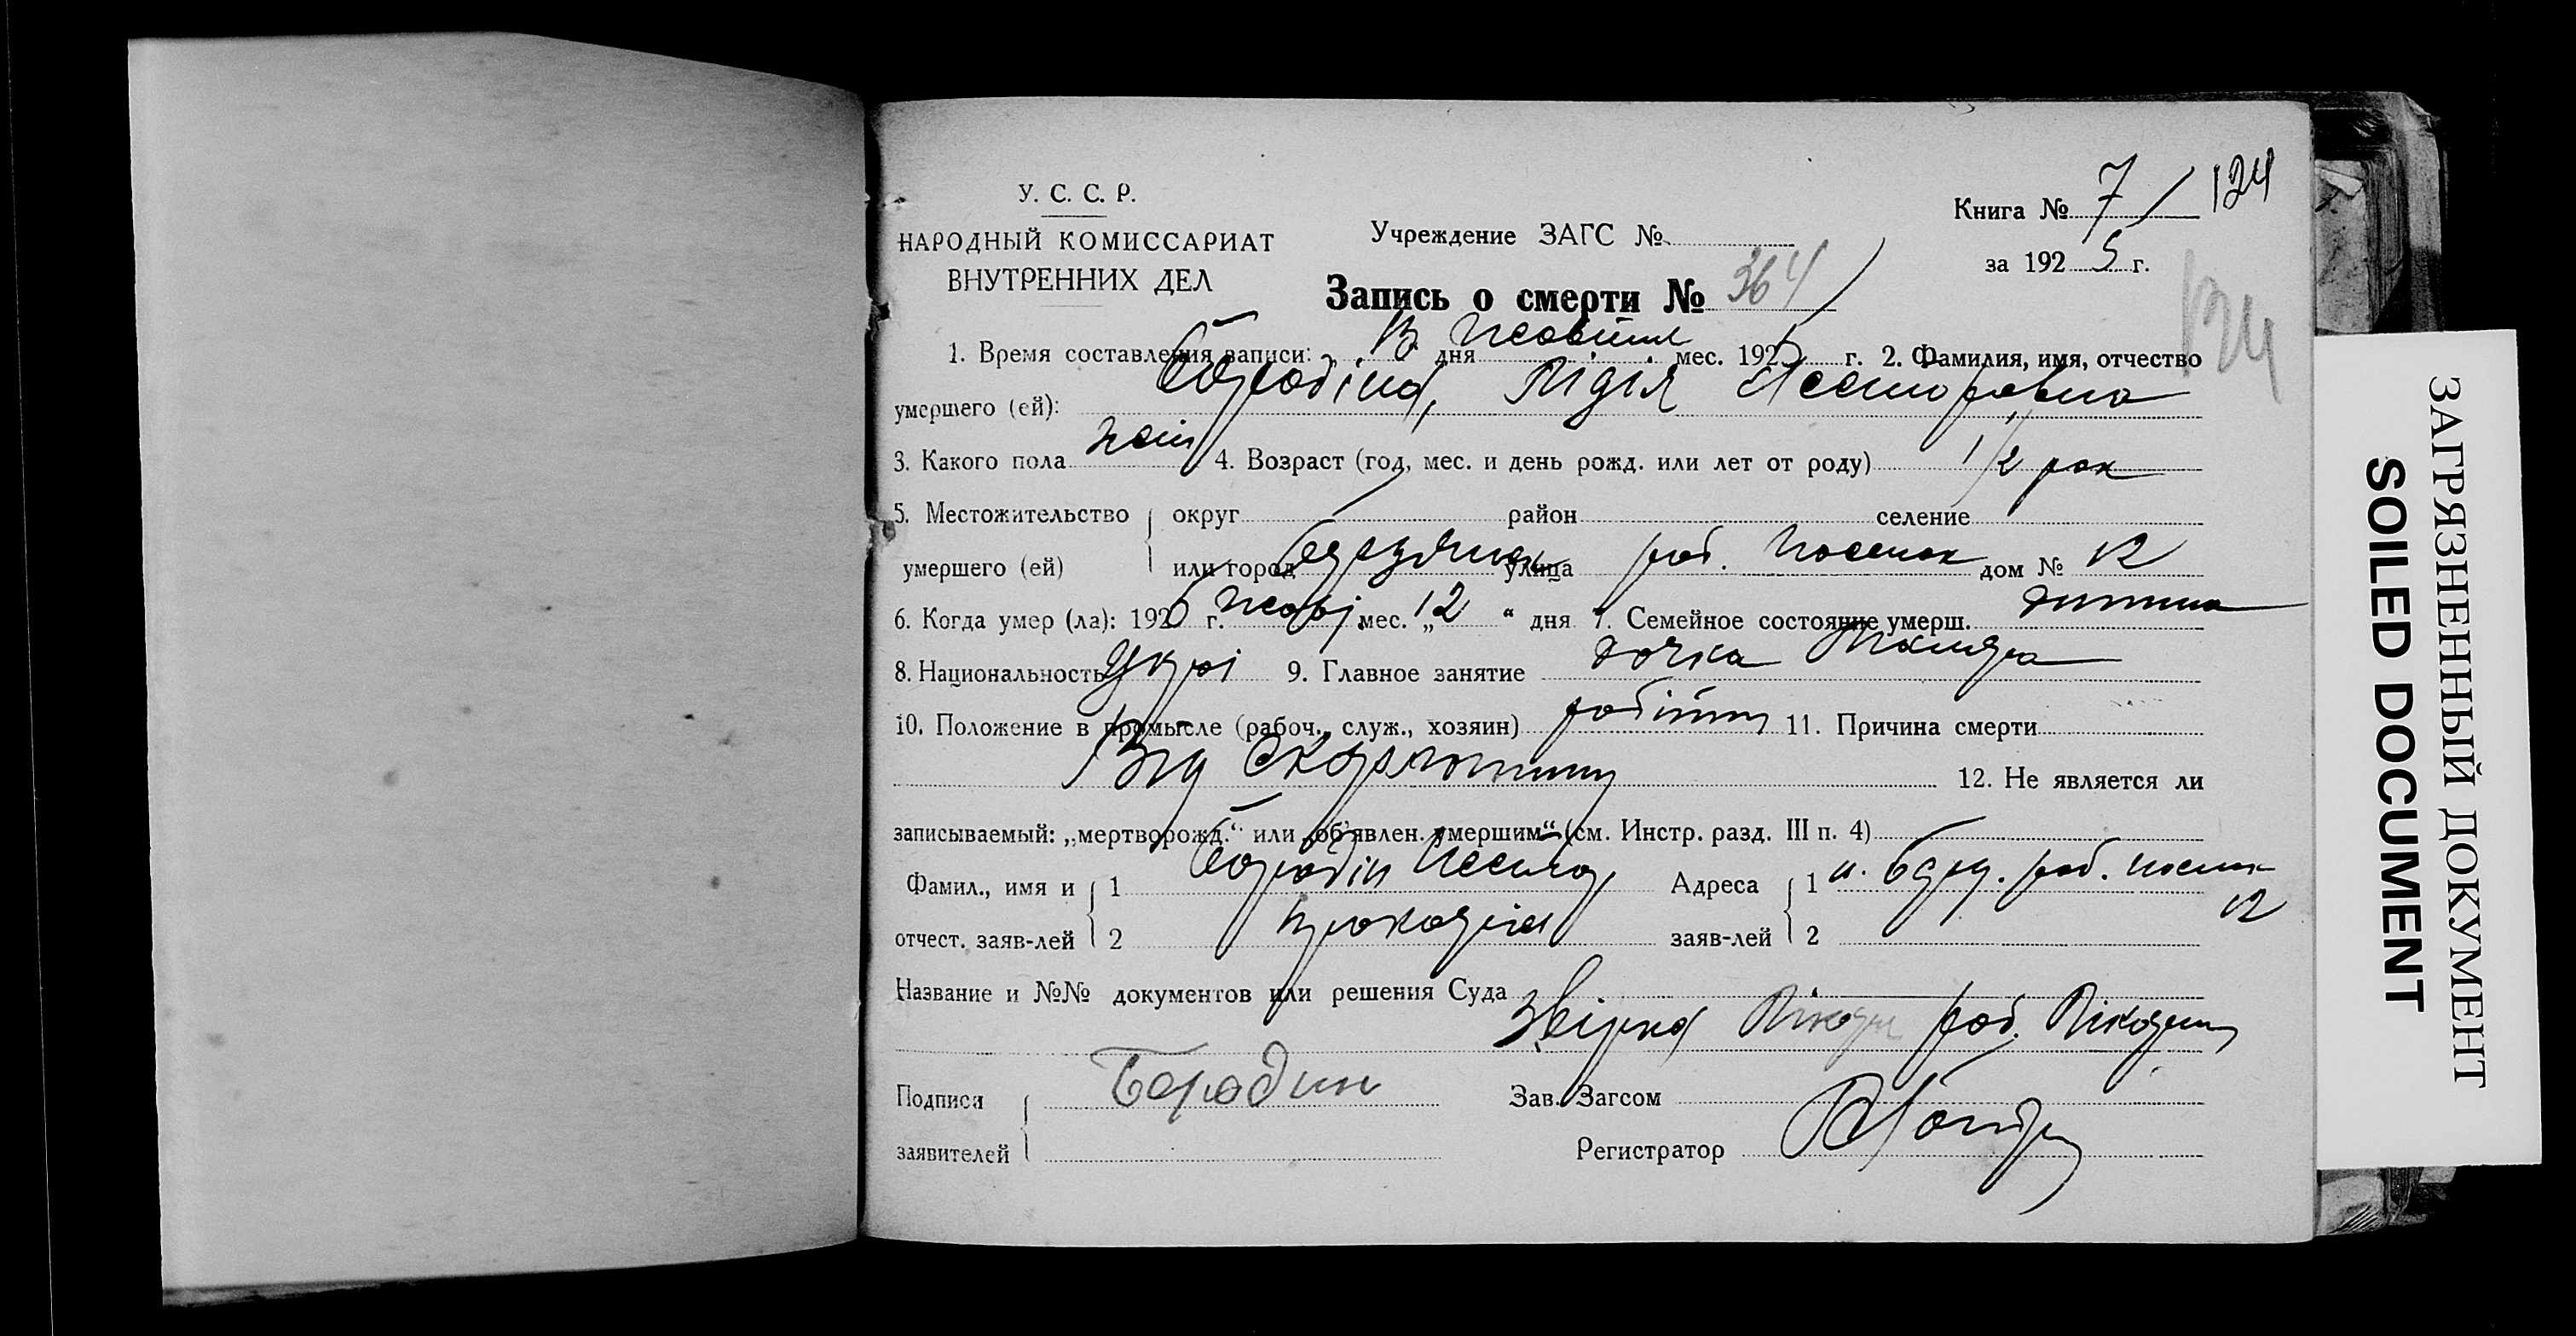 У. С. С. Р.
НАРОДНЫЙ КОМИССАРИАТ
ВНУТРЕННИХ ДЕЛ
Учреждение ЗАГС №
Книга № 7 / 124
за 192 5 г.
124
Запись о смерти № 364
1. Время составления записи: 13 дня жовтня мес. 192 5 г. 2. Фамилия, имя, отчество
умершего (ей): Бородіна, Лідія Несторовна
3. Какого пола жін 4. Возраст (год, мес. и день рожд. или лет от роду) 1/2 рок
5. Местожительство умершего (ей) округ район селение
или город улица роб. посьолок дом № 12
6. Когда умер (ла): 192 5 г. жовт мес. „12“ дня 7. Семейное состояние умерш. дитина
8. Национальность Укр 9. Главное занятие дочка
10. Положение в промысле (рабоч., служ., хозяин) робітниц 11. Причина смерти
Від скарлатини 12. Не является ли
записываемый: „мертворожд.“ или „об'явлен. умершим“ (см. Инстр. разд. III п. 4)
Фамил., имя и 1 Бородін Нестор Адреса 1 роб. посьолок
12
отчест. заяв-лей 2 заяв-лей 2
Название и №№ документов или решения Суда
роб.
Подписи Бородин Зав. Загсом
заявителей Регистратор
ЗАГРЯЗНЕННЫЙ ДОКУМЕНТ
SOILED DOCUMENT